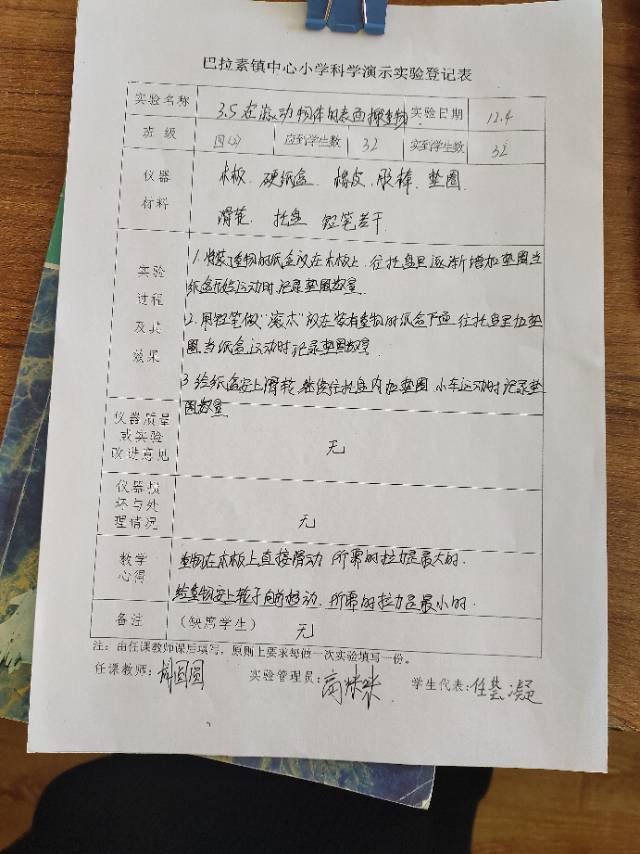 巴拉素镇中心小学科学演示实验登记表
实验名称 3.5在滚动物体的表面 重物 实验日期 12.4
班级 四(2) 应到学生数 32 实到学生数 32
仪器 木板、硬纸盒、橡皮、胶棒、垫圈
材料 滑轮、托盘 铅笔若干
实验过程及其效果
1.将装重物的纸盒放在木板上,往托盘里逐渐增加垫圈当
纸盒开始运动时记录垫圈数量
2.用铅笔做“滚木”放在装有重物的纸盒下面,往托盘里加垫
圈,当纸盒运动时记录垫圈数量
3.给纸盒安上滑轮,继续往托盘内加垫圈,小车运动时记录垫
圈数量
仪器质量
或实验
改进意见 无
仪器损
坏与处
理情况 无
教学 重物在木板上直接滑动 所需的拉力是最大的.
心得 给重物安上轮子向前移动,所需的拉力是最小的.
备注 (缺席学生) 无
注:由任课教师课后填写,原则上要求每做一次实验填写一份。
任课教师: 圆圆 实验管理员:高 学生代表:任 凝